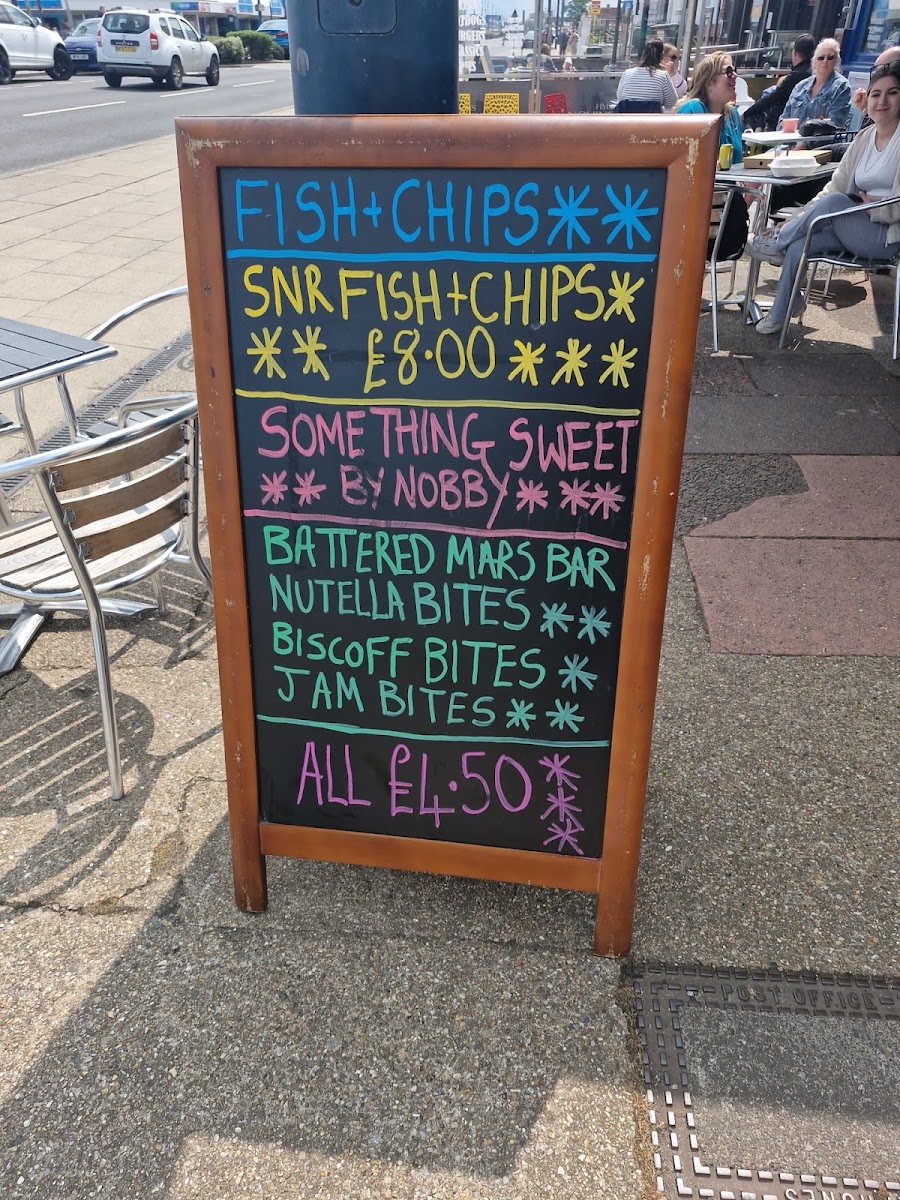 FISH+CHIPS**
SNR FISH+CHIPS*
** £8.00 ***
SOMETHING SWEET
** BY NOBBY ***
BATTERED MARS BAR
NUTELLA BITES **
BISCOFF BITES *
JAM BITES **
ALL £4.50 ***
POST OFFICE